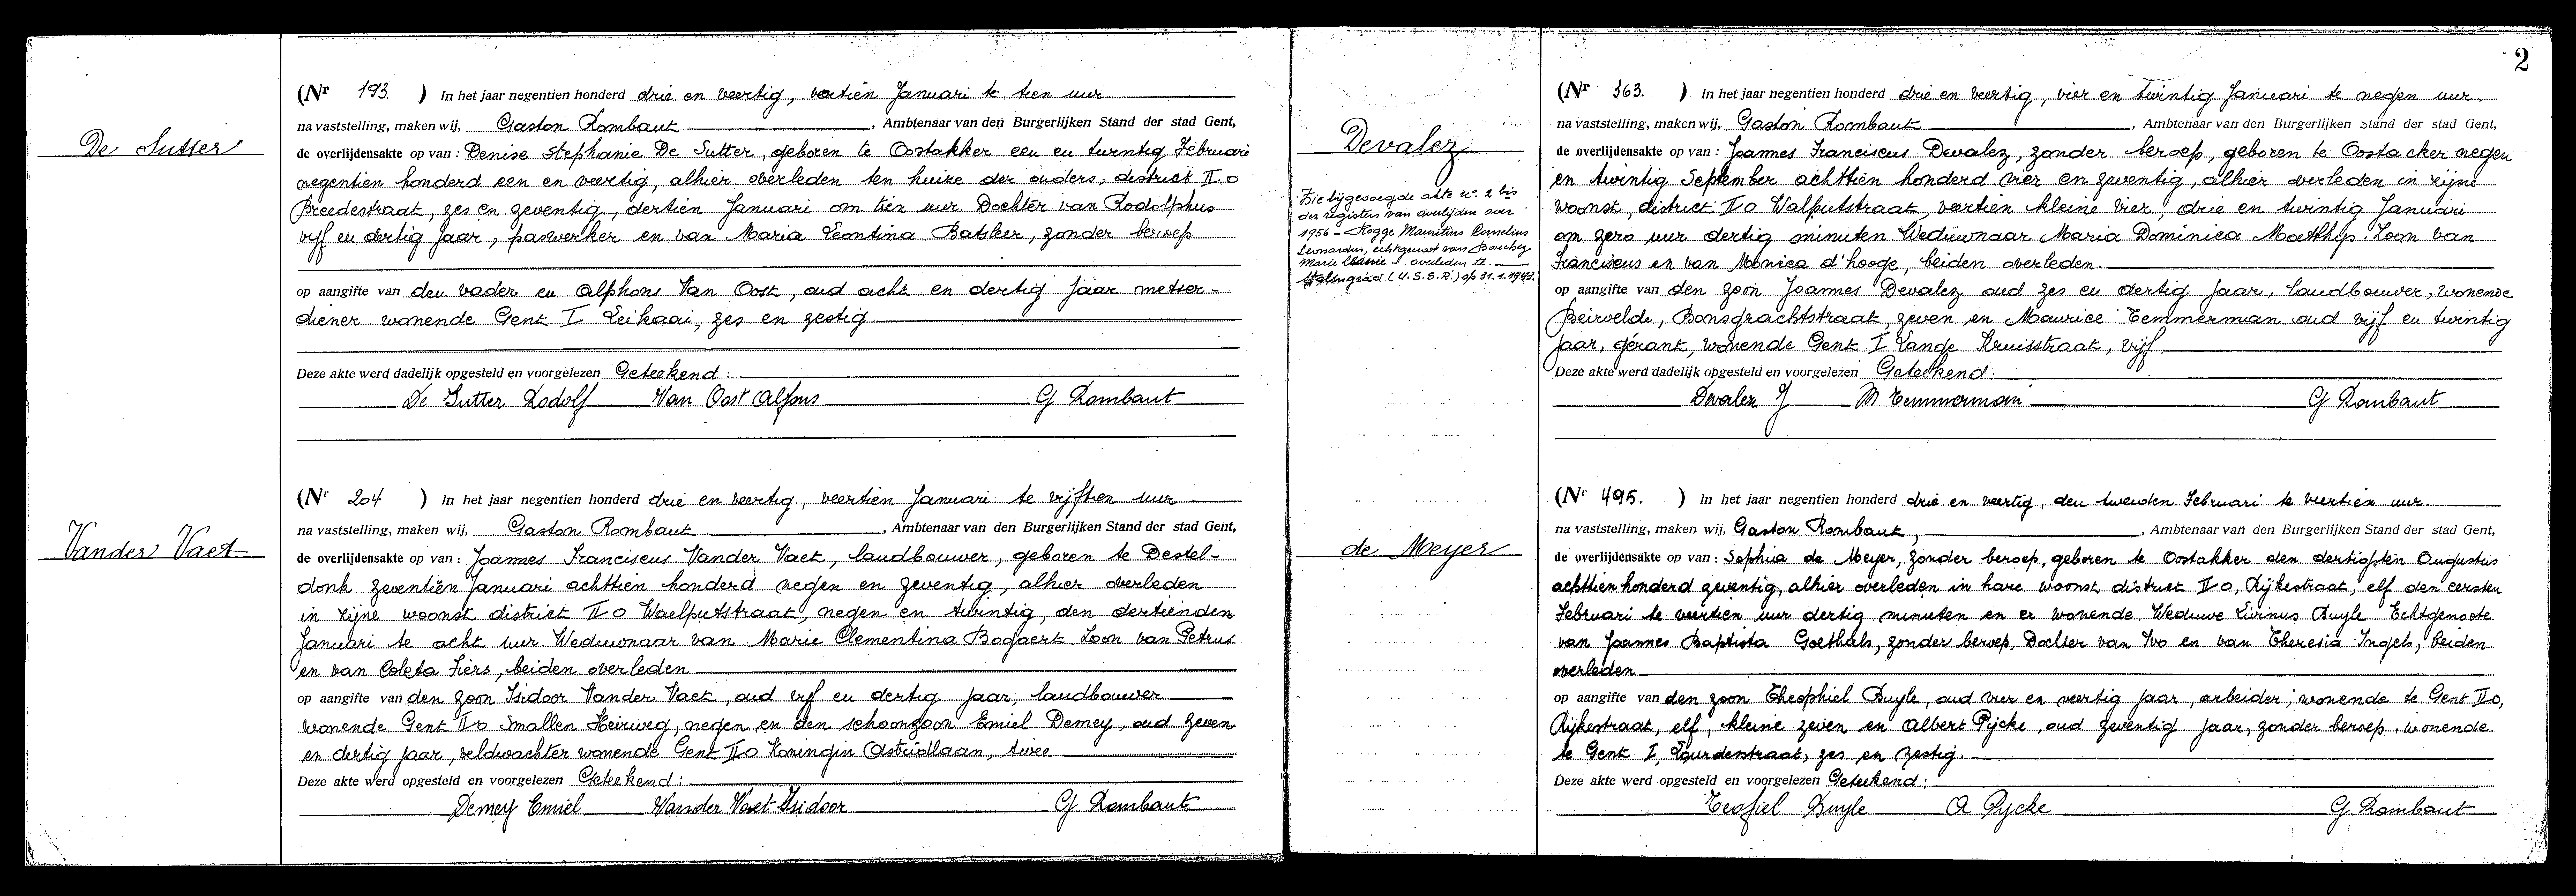 De Sutter
(Nr 193. ) In het jaar negentien honderd drie en veertig, veertien Januari te tien uur
na vaststelling, maken wij, Gaston Rombaut, Ambtenaar van den Burgerlijken Stand der stad Gent,
de overlijdensakte op van : Denise Stephanie De Sutter, geboren te Oostakker een en twintig Februari
negentien honderd een en veertig, alhier overleden ten huize der ouders, district II O
Breedestraat, zes en zeventig, dertien Januari om tien uur. Dochter van Rodolphus
vijf en dertig jaar, paswerker en van Maria Leontina Batsker, zonder beroep
op aangifte van den vader en Alphons Van Oost, oud acht en dertig jaar metser-
diener wonende Gent I Leikaai, zes en zestig
Deze akte werd dadelijk opgesteld en voorgelezen Geteekend :
De Sutter Rodolf Van Oost Alfons G Rombaut
Vander Vaet
(Nr 204 ) In het jaar negentien honderd drie en veertig, veertien Januari te vijftien uur
na vaststelling, maken wij, Gaston Rombaut, Ambtenaar van den Burgerlijken Stand der stad Gent,
de overlijdensakte op van : Joannes Franciscus Vander Vaet, landbouwer, geboren te Destel-
donk zeventien Januari achttien honderd negen en zeventig, alhier overleden
in zijne woonst district II O Waelputstraat, negen en twintig, den dertienden
Januari te acht uur Weduwnaar van Marie Clementina Bogaert. Zoon van Petrus
en van Coleta Fiers, beiden overleden
op aangifte van den zoon Isidoor Vander Vaet, oud vijf en dertig jaar, landbouwer
wonende Gent II O Smallen Heirweg, negen en den schoonzoon Emiel Demey, oud zeven
en dertig jaar, veldwachter wonende Gent II O Koningin Astridlaan, twee
Deze akte werd opgesteld en voorgelezen Geteekend :
Demey Emiel Vander Vaet Isidoor G Rombaut
2
Devalez
Zie bijgevoegde akte nr. 2 bis
der registers van overlijden over
1956 - Rogge Mauritius Cornelius
Leonardus, echtgenoot van
Marie overleden te
Stalingrad (U.S.S.R.) op 31.1.1943.
(Nr 363. ) In het jaar negentien honderd drie en veertig, vier en twintig Januari te negen uur
na vaststelling, maken wij, Gaston Rombaut, Ambtenaar van den Burgerlijken Stand der stad Gent,
de overlijdensakte op van : Joannes Franciscus Devalez, zonder beroep, geboren te Oostacker negen
en twintig September achttien honderd vier en zeventig, alhier overleden in zijne
woonst, district II O Walputstraat, veertien kleine vier, drie en twintig Januari
om zero uur dertig minuten Weduwnaar Maria Dominica Matthys. Zoon van
Franciscus en van Monica d'hooge, beiden overleden
op aangifte van den zoon Joannes Devalez oud zes en dertig jaar, landbouwer, wonende
Beirvelde, Bonsgrachtstraat, zeven en Maurice Temmerman oud vijf en twintig
jaar, gérant, wonende Gent I Lange Kruisstraat, vijf
Deze akte werd dadelijk opgesteld en voorgelezen Geteekend :
Devalez J M Temmerman G Rombaut
de Meyer
(Nr 495. ) In het jaar negentien honderd drie en veertig, den tweeden Februari te veertien uur.
na vaststelling, maken wij, Gaston Rombaut, Ambtenaar van den Burgerlijken Stand der stad Gent,
de overlijdensakte op van : Sophia de Meyer, zonder beroep, geboren te Oostakker den dertigsten Augustus
achttienhonderd zeventig, alhier overleden in hare woonst, district II O, Rijkestraat, elf den eersten
Februari te veertien uur dertig minuten en er wonende Weduwe Livinus Buyle. Echtgenoote
van Joannes Baptista Goethals, zonder beroep, Dochter van Ivo en van Theresia Ingels, beiden
overleden
op aangifte van den zoon Theophiel Buyle, oud vier en veertig jaar, arbeider, wonende te Gent II O,
Rijkestraat, elf, kleine zeven en Albert Pycke, oud zeventig jaar, zonder beroep, wonende
te Gent I, zes en zestig.
Deze akte werd opgesteld en voorgelezen Geteekend :
Teofiel Buyle A Pycke G Rombaut